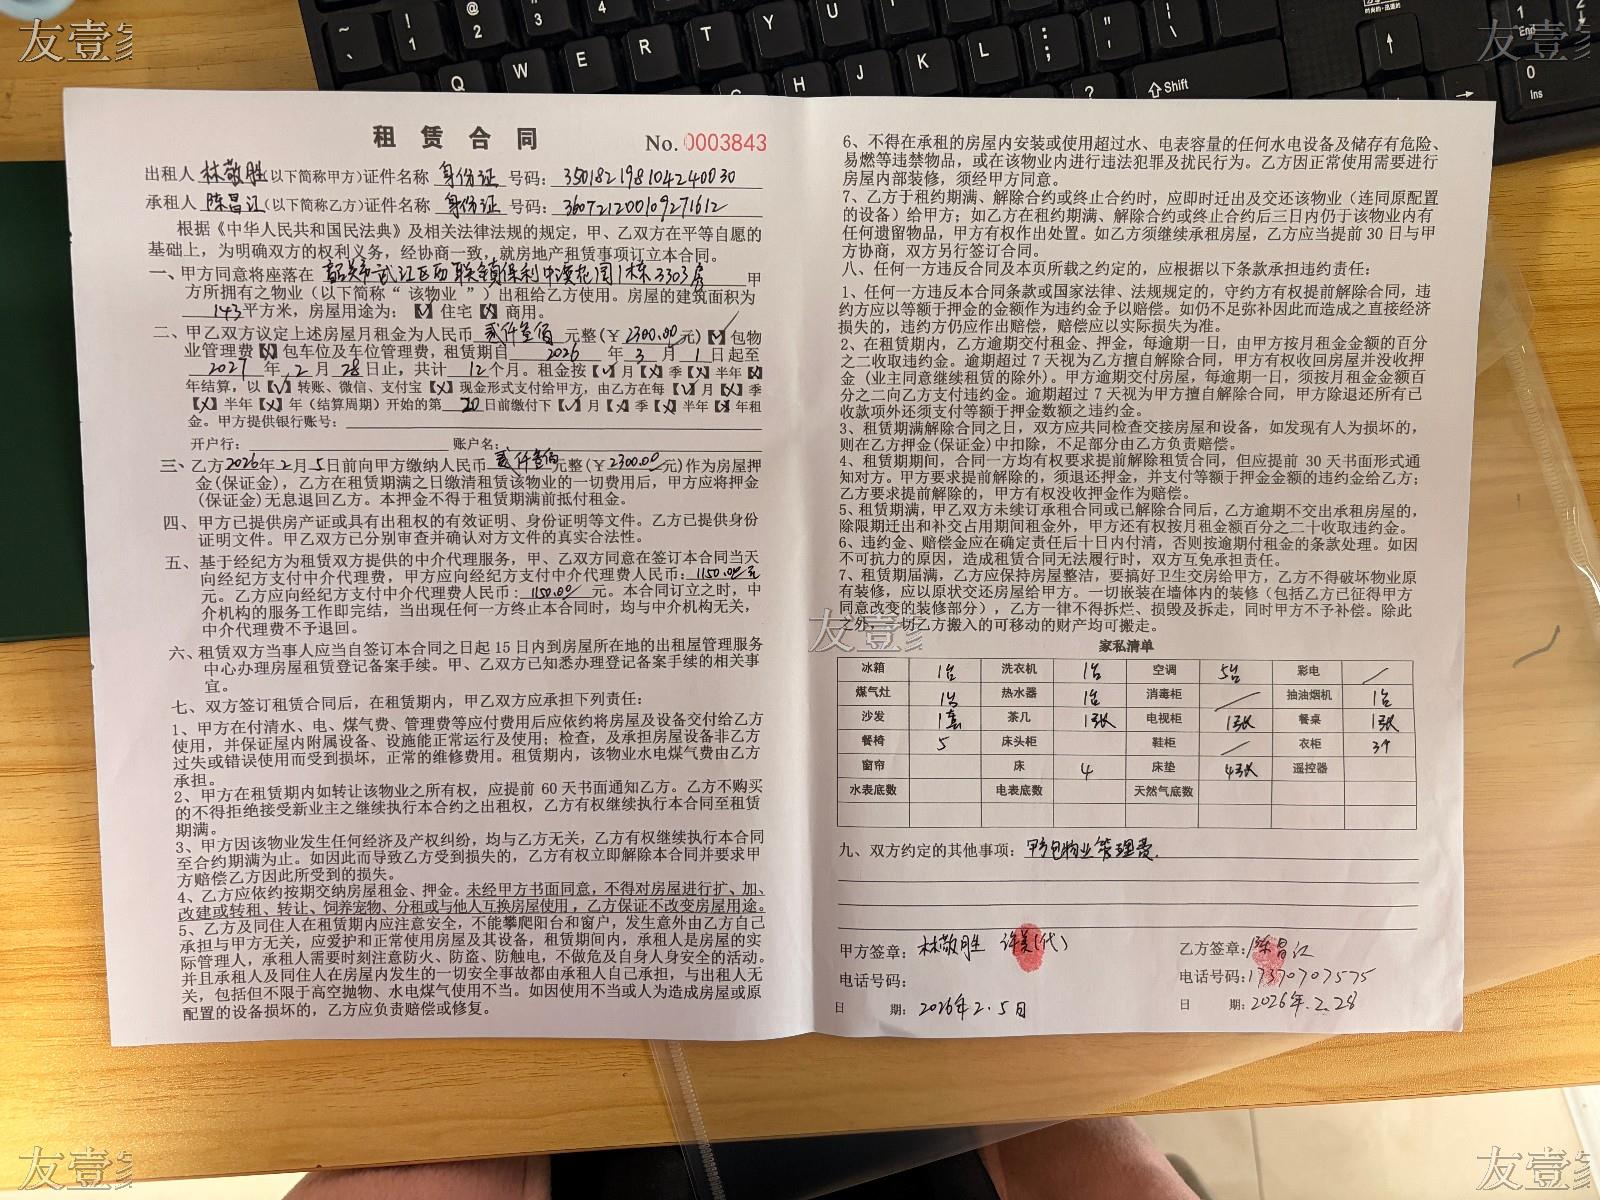 友壹家
友壹家
租 赁 合 同 No. 0003843
出租人 林敬胜 以下简称甲方)证件名称 身份证 号码: 350182198104240030
承租人 陈昌江 (以下简称乙方)证件名称 身份证 号码: 360721200109271612
根据《中华人民共和国民法典》及相关法律法规的规定，甲、乙双方在平等自愿的
基础上，为明确双方的权利义务，经协商一致，就房地产租赁事项订立本合同。
一、甲方同意将座落在 韶关市武江区西联镇保利中濠花园1栋3303房 甲
方所拥有之物业（以下简称“该物业”）出租给乙方使用。房屋的建筑面积为
143 平方米，房屋用途为：【√】住宅【X】商用。
二、甲乙双方议定上述房屋月租金为人民币 贰仟叁佰 元整(￥2300.00元)【√】包物
业管理费【X】包车位及车位管理费，租赁期自 2026 年 3 月 1 日起至
2027 年 2 月 28 日止，共计 12 个月。租金按【√】月【X】季【X】半年【X】
年结算，以【√】转账、微信、支付宝【X】现金形式支付给甲方，由乙方在每【√】月【X】季
【X】半年【X】年（结算周期）开始的第 20 日前缴付下【√】月【X】季【X】半年【X】年租
金。甲方提供银行账号：
开户行： 账户名：
三、乙方2026年2月5日前向甲方缴纳人民币 贰仟叁佰 元整(￥2300.00元)作为房屋押
金(保证金)，乙方在租赁期满之日缴清租赁该物业的一切费用后，甲方应将押金
(保证金)无息退回乙方。本押金不得于租赁期满前抵付租金。
四、甲方已提供房产证或具有出租权的有效证明、身份证明等文件。乙方已提供身份
证明文件。甲乙双方已分别审查并确认对方文件的真实合法性。
五、基于经纪方为租赁双方提供的中介代理服务，甲、乙双方同意在签订本合同当天
向经纪方支付中介代理费，甲方应向经纪方支付中介代理费人民币：1150.00元
元。乙方应向经纪方支付中介代理费人民币：1150.00 元。本合同订立之时，中
介机构的服务工作即完结，当出现任何一方终止本合同时，均与中介机构无关，
中介代理费不予退回。
六、租赁双方当事人应当自签订本合同之日起 15 日内到房屋所在地的出租屋管理服务
中心办理房屋租赁登记备案手续。甲、乙双方已知悉办理登记备案手续的相关事
宜。
七、双方签订租赁合同后，在租赁期内，甲乙双方应承担下列责任：
1、甲方在付清水、电、煤气费、管理费等应付费用后应依约将房屋及设备交付给乙方
使用，并保证屋内附属设备、设施能正常运行及使用；检查，及承担房屋设备非乙方
过失或错误使用而受到损坏，正常的维修费用。租赁期内，该物业水电煤气费由乙方
承担。
2、甲方在租赁期内如转让该物业之所有权，应提前 60 天书面通知乙方。乙方不购买
的不得拒绝接受新业主之继续执行本合约之出租权，乙方有权继续执行本合同至租赁
期满。
3、甲方因该物业发生任何经济及产权纠纷，均与乙方无关，乙方有权继续执行本合同
至合约期满为止。如因此而导致乙方受到损失的，乙方有权立即解除本合同并要求甲
方赔偿乙方因此所受到的损失。
4、乙方应依约按期交纳房屋租金、押金。未经甲方书面同意，不得对房屋进行扩、加、
改建或转租、转让、饲养宠物、分租或与他人互换房屋使用，乙方保证不改变房屋用途。
5、乙方及同住人在租赁期内应注意安全，不能攀爬阳台和窗户，发生意外由乙方自己
承担与甲方无关，应爱护和正常使用房屋及其设备，租赁期间内，承租人是房屋的实
际管理人，承租人需要时刻注意防火、防盗、防触电，不做危及自身人身安全的活动。
并且承租人及同住人在房屋内发生的一切安全事故都由承租人自己承担，与出租人无
关，包括但不限于高空抛物、水电煤气使用不当。如因使用不当或人为造成房屋或原
配置的设备损坏的，乙方应负责赔偿或修复。
6、不得在承租的房屋内安装或使用超过水、电表容量的任何水电设备及储存有危险、
易燃等违禁物品，或在该物业内进行违法犯罪及扰民行为。乙方因正常使用需要进行
房屋内部装修，须经甲方同意。
7、乙方于租约期满、解除合约或终止合约时，应即时迁出及交还该物业（连同原配置
的设备）给甲方；如乙方在租约期满、解除合约或终止合约后三日内仍于该物业内有
任何遗留物品，甲方有权作出处置。如乙方须继续承租房屋，乙方应当提前 30 日与甲
方协商，双方另行签订合同。
八、任何一方违反合同及本页所载之约定的，应根据以下条款承担违约责任：
1、任何一方违反本合同条款或国家法律、法规规定的，守约方有权提前解除合同，违
约方应以等额于押金的金额作为违约金予以赔偿。如仍不足弥补因此而造成之直接经济
损失的，违约方仍应作出赔偿，赔偿应以实际损失为准。
2、在租赁期内，乙方逾期交付租金、押金，每逾期一日，由甲方按月租金金额的百分
之二收取违约金。逾期超过 7 天视为乙方擅自解除合同，甲方有权收回房屋并没收押
金（业主同意继续租赁的除外)。甲方逾期交付房屋，每逾期一日，须按月租金金额百
分之二向乙方支付违约金。逾期超过 7 天视为甲方擅自解除合同，甲方除退还所有已
收款项外还须支付等额于押金数额之违约金。
3、租赁期满解除合同之日，双方应共同检查交接房屋和设备，如发现有人为损坏的，
则在乙方押金(保证金)中扣除，不足部分由乙方负责赔偿。
4、租赁期期间，合同一方均有权要求提前解除租赁合同，但应提前 30 天书面形式通
知对方。甲方要求提前解除的，须退还押金，并支付等额于押金金额的违约金给乙方；
乙方要求提前解除的，甲方有权没收押金作为赔偿。
5、租赁期满，甲乙双方未续订承租合同或已解除合同后，乙方逾期不交出承租房屋的，
除限期迁出和补交占用期间租金外，甲方还有权按月租金额百分之二十收取违约金。
6、违约金、赔偿金应在确定责任后十日内付清，否则按逾期付租金的条款处理。如因
不可抗力的原因，造成租赁合同无法履行时，双方互免承担责任。
7、租赁期届满，乙方应保持房屋整洁，要搞好卫生交房给甲方，乙方不得破坏物业原
有装修，应以原状交还房屋给甲方。一切嵌装在墙体内的装修（包括乙方已征得甲方
同意改变的装修部分），乙方一律不得拆烂、损毁及拆走，同时甲方不予补偿。除此
之外，一切乙方搬入的可移动的财产均可搬走。
友壹家
家私清单
冰箱 1台 洗衣机 1台 空调 5台 彩电 /
煤气灶 1台 热水器 1台 消毒柜 / 抽油烟机 1台
沙发 1套 茶几 1张 电视柜 1张 餐桌 1张
餐椅 5 床头柜 鞋柜 / 衣柜 3个
窗帘 床 4 床垫 4张 遥控器
水表底数 电表底数 天然气底数
九、双方约定的其他事项：甲方包物业管理费.
甲方签章：林敬胜 (代) 乙方签章：陈昌江
电话号码： 电话号码：17370707575
日 期：2026年2.5日 日 期：2026年.2.28
友壹家
友壹家